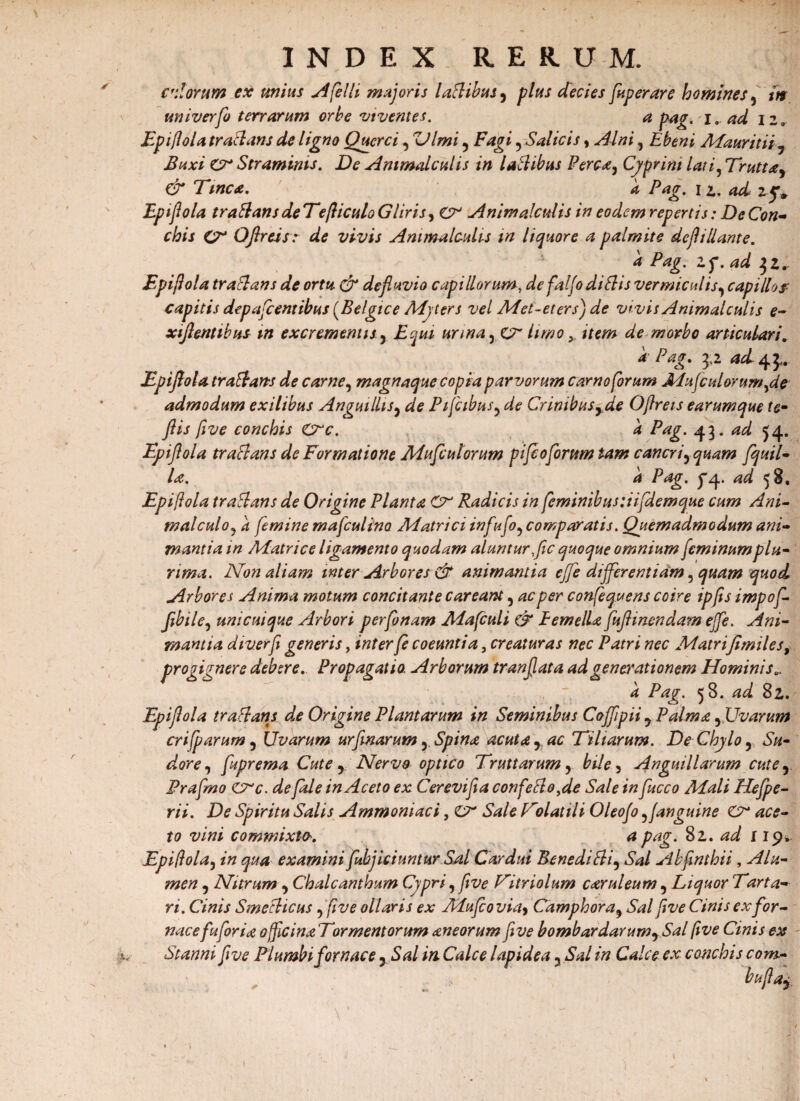 INDEX RERUM.
culorum ex unius Aſelli majoris lactibus, plus decies ſuperare homines, in
univerſo terrarum orbe viventes. a pag. 1. ad 12.
Epiſtola tractans de ligno Querci, Ulmi, Fagi, Salicis, Alni, Ebeni Mauritii,
Buxi & Straminis. De Animalculis in lactibus Percæ, Cyprini lati, Truttæ,
& Tincæ. à Pag. 12. ad 25.
Epiſtola tractans de Teſticulo Gliris, & Animalculis in eodem repertis: De Con-
chis & Oſtreis: de vivis Animalculis in liquore a palmite deſtillante.
à Pag. 25. ad 32.
Epiſtola tractans de ortu & defluvio capillorum, de falſo dictis vermiculis, capillos
capitis depaſcentibus (Belgice Myters vel Met-eters) de vivis Animalculis e-
xiſtentibus in excrementis, Equi urina, & limo, item de morbo articulari.
à Pag. 32 ad 43.
Epiſtola tractans de carne, magnaque copia parvorum carnoſorum Muſculorum, de
admodum exilibus Anguillis, de Piſcibus, de Crinibus, de Oſtreis earumque te-
ſtis ſive conchis &c. à Pag. 43. ad 54.
Epiſtola tractans de Formatione Muſculorum piſcoſorum tam cancri, quam ſquil-
læ. à Pag. 54. ad 58.
Epiſtola tractans de Origine Plantæ & Radicis in ſeminibus: iiſdemque cum Ani-
malculo, à ſemine maſculino Matrici infuſo, comparatis. Quemadmodum ani-
mantia in Matrice ligamento quodam aluntur, ſic quoque omnium ſeminum plu-
rima. Non aliam inter Arbores & animantia eſſe differentiam, quam quod
Arbores Anima motum concitante careant, ac per conſequens coire ipſis impoſ-
ſibile, unicuique Arbori perſonam Maſculi & Femellæ ſuſtinendam eſſe. Ani-
mantia diverſi generis, inter ſe coeuntia, creaturas nec Patri nec Matri ſimiles,
progignere debere. Propagatio Arborum tranſlata ad generationem Hominis.
à Pag. 58. ad 82.
Epiſtola tractans de Origine Plantarum in Seminibus Coſſipii, Palmæ, Uvarum
criſparum, Uvarum urſinarum, Spinæ acutæ, ac Tiliarum. De Chylo, Su-
dore, ſuprema Cute, Nervo optico Truttarum, bile, Anguillarum cute,
Praſmo &c. de ſale in Aceto ex Cereviſia confecto, de Sale in ſucco Mali Heſpe-
rii. De Spiritu Salis Ammoniaci, & Sale Volatili Oleoſo, ſanguine & ace-
to vini commixto. a pag. 82. ad 119.
Epiſtola, in qua examini ſubjiciuntur Sal Cardui Benedicti, Sal Abſinthii, Alu-
men, Nitrum, Chalcanthum Cypri, ſive Vitriolum cæruleum, Liquor Tarta-
ri. Cinis Smecticus, ſive ollaris ex Muſcovia, Camphora, Sal ſive Cinis ex for-
nace fuſoriæ officinæ Tormentorum æneorum ſive bombardarum, Sal ſive Cinis ex
Stanni ſive Plumbi fornace, Sal in Calce lapidea, Sal in Calce ex conchis com-
buſta,